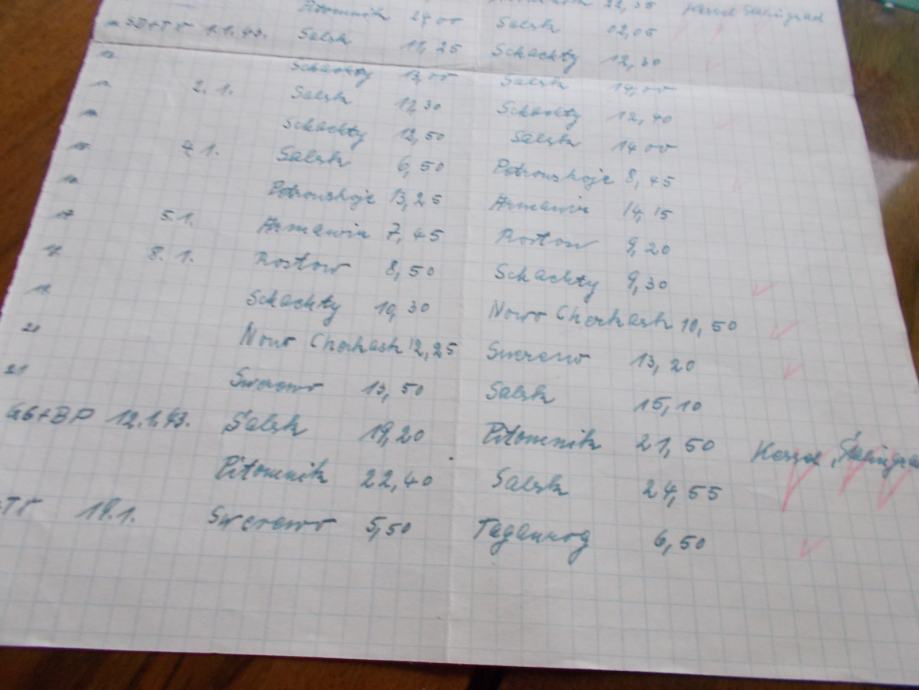 Pitomnik 24,00 Salsk 02,05 Kessel Stalingrad
SD+TT 1.1.43. Salsk 11,25 Schachty 12,30
" Schachty 13,00 Salsk 14,00
" 2.1. Salsk 11,30 Schachty 12,40
" Schachty 12,50 Salsk 14,00
" 4.1. Salsk 6,50 Petrowskoje 8,45
" Petrowskoje 13,25 Armawir 14,15
" 5.1. Armawir 7,45 Rostow 9,20
" 8.1. Rostow 8,50 Schachty 9,30
" Schachty 10,30 Nowo Cherkask 10,50
" Nowo Cherkask 12,25 Swerewo 13,20
" Swerewo 13,50 Salsk 15,10
GG+BP 12.1.43. Salsk 19,20 Pitomnik 21,50 Kessel Stalingrad
Pitomnik 22,40 Salsk 24,55
TT 19.1. Swerewo 5,50 Taganrog 6,50